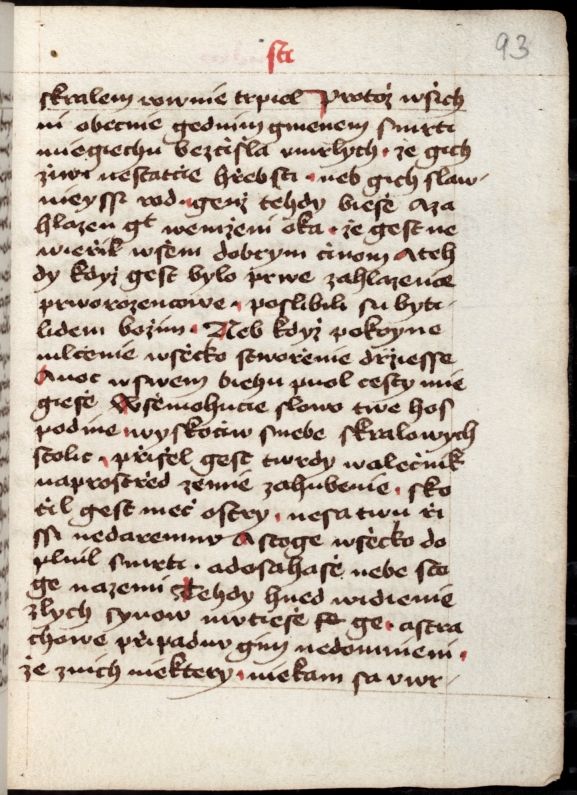 sti
93
skralem rownie trpiel Protoż wsich
ni obecnie gednim gmenem smrti
miegiechu bezčisla umrlych · že gich
žiwi nestatčie hřebsti · neb gich slaw-
nieyssi rod · genž tehdy bieše Aza
hlazen gt wemženi oka · že gest ne
wieřil wšem dobrym činom Ateh
dy když gest bylo prwe zahlazenie
prworozencowe · poslibili su byti-
lidem božim · Neb když pokoyne
mlčenie wšecko stworženie držiesse
Anoc wswem biehu puol cesty mie
gieše Wšemohucie slowo twe hos
podine wyskočiw snebe skralowych
stolic · přišel gest twrdy walečnik
naprostřed zemie zahubenie · sko
čil gest meč ostry · nesa twu ři
ssi nedaremnu Astoge wšecko do
plnil smrti · adosahaše nebe sto
ge nazemi Tehdy hned widienie
zlych synow mutieše ge · astra
chowe připadu gim nedomnieni ·
že znich niektery · niekam sa uwr-